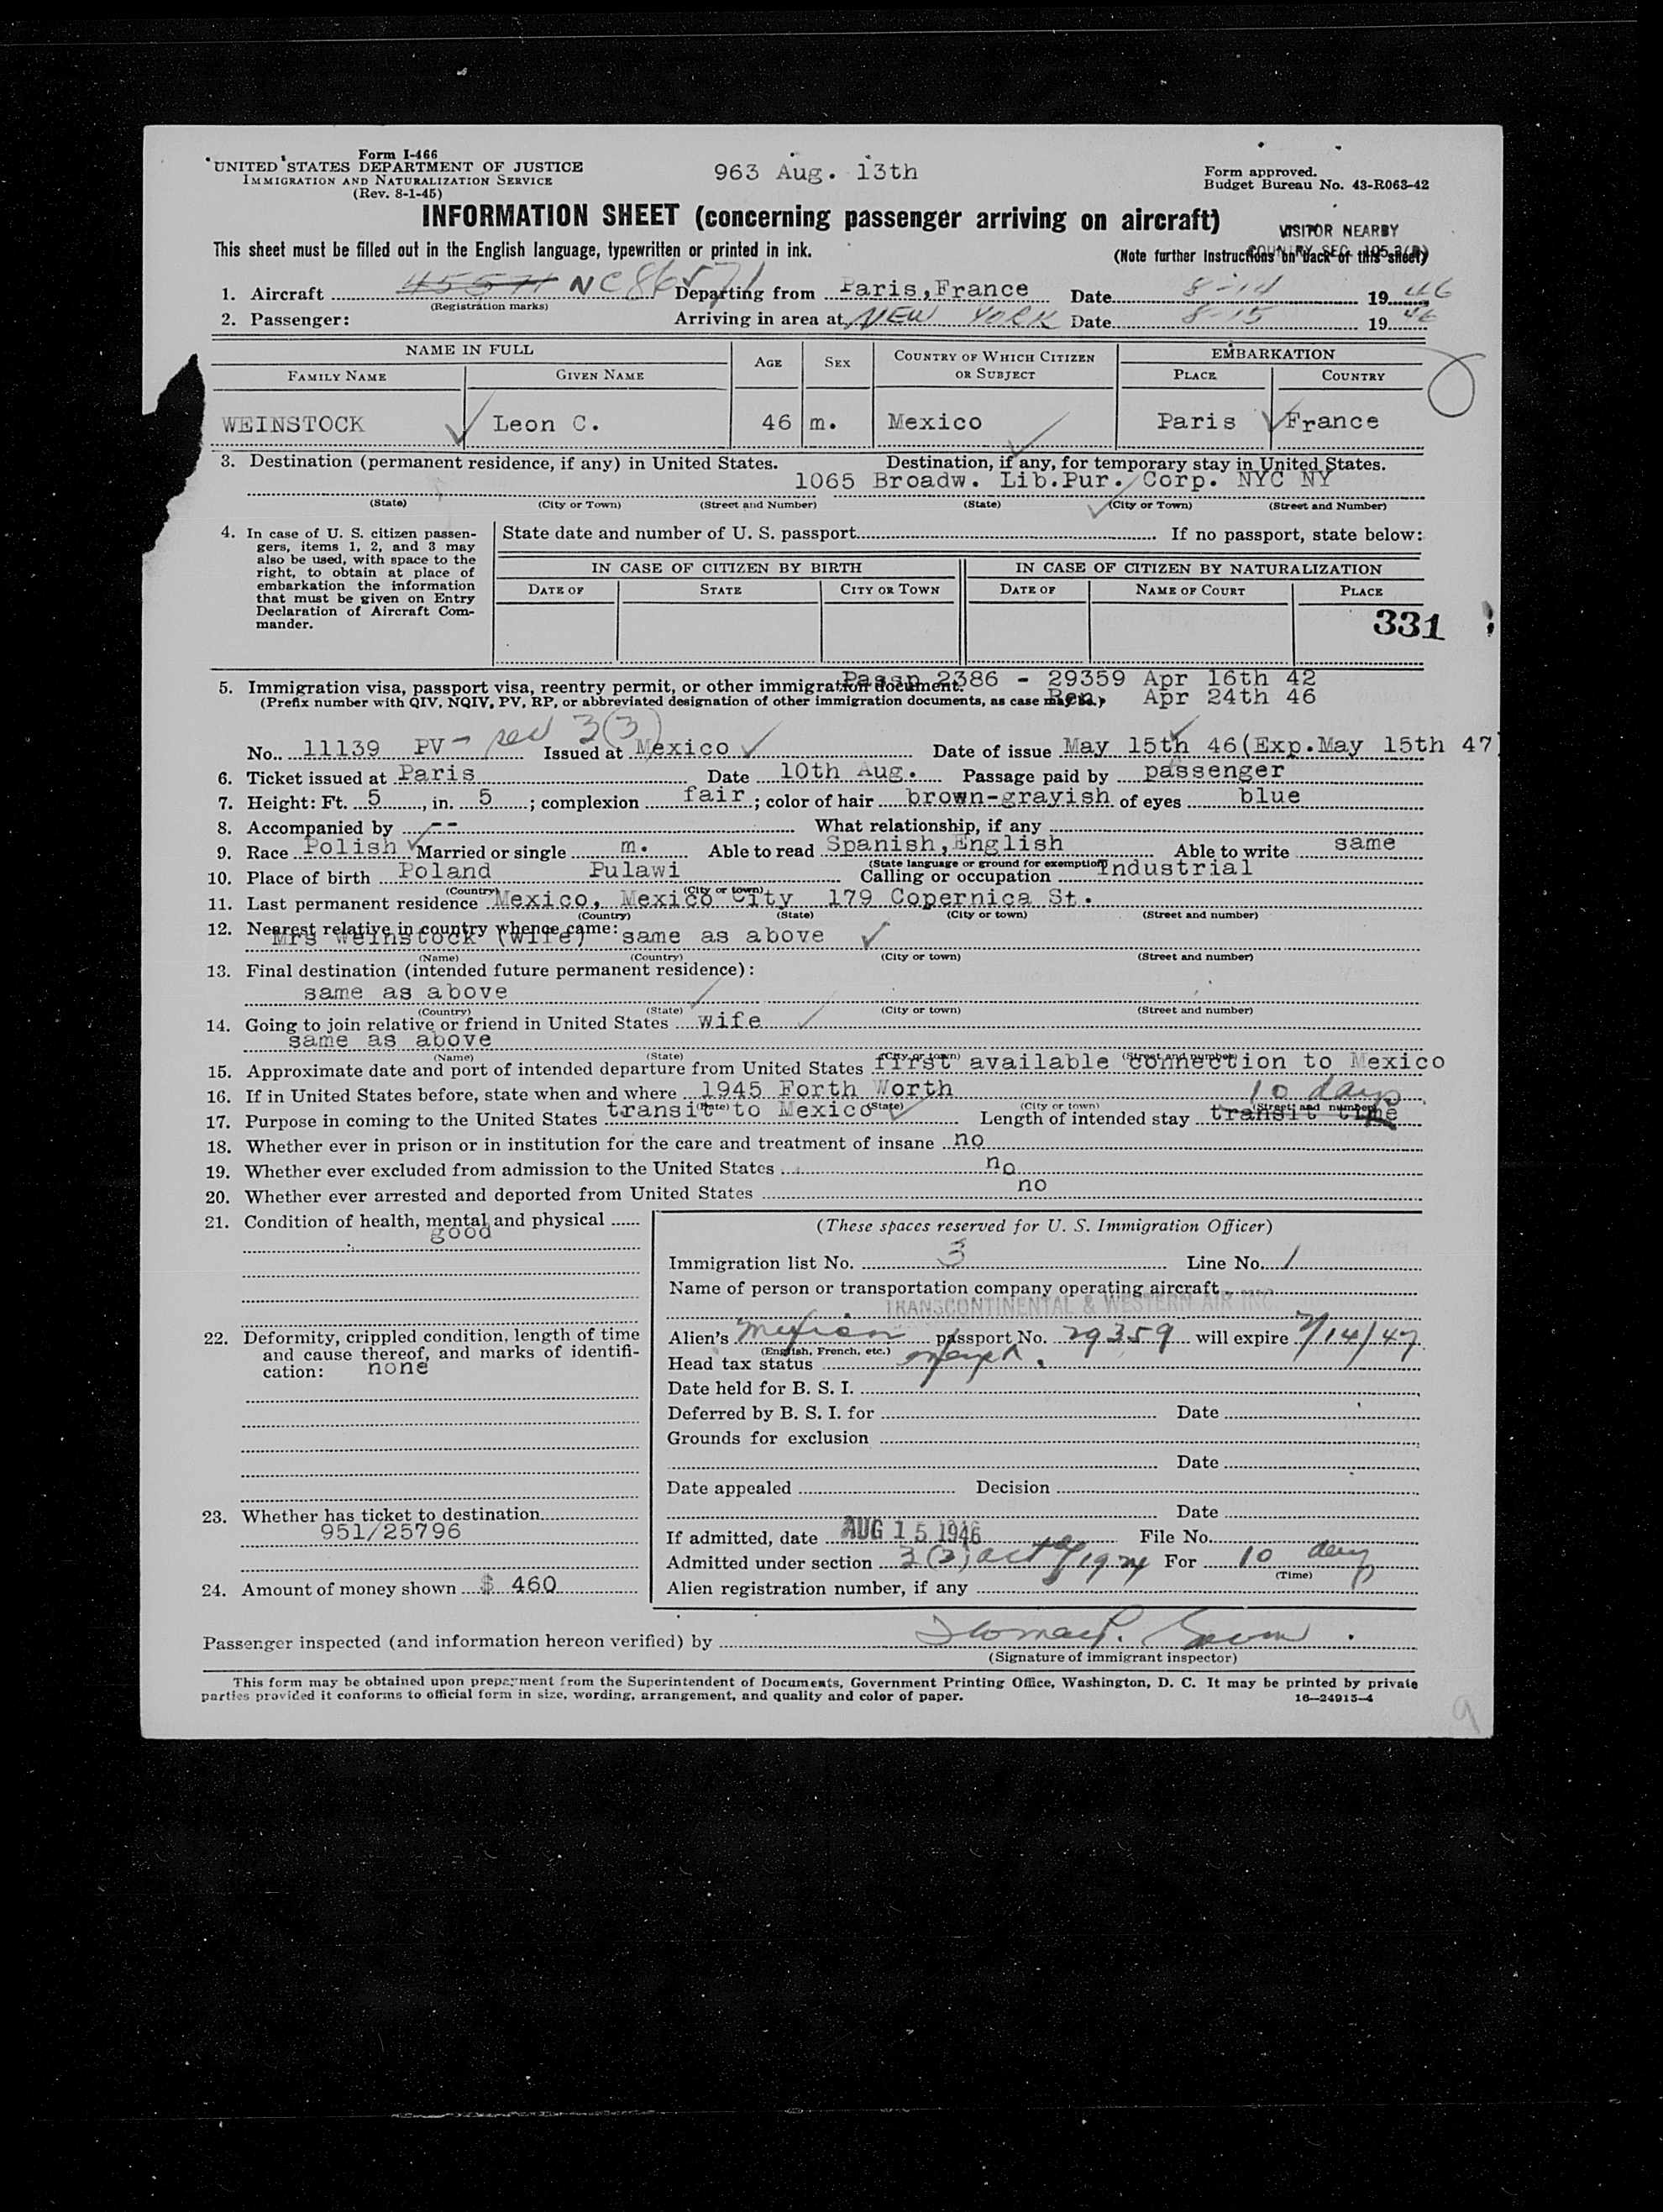 Form I-466
UNITED STATES DEPARTMENT OF JUSTICE
IMMIGRATION AND NATURALIZATION SERVICE
(Rev. 8-1-45)
963 Aug. 13th
Form approved.
Budget Bureau No. 43-R063-42
INFORMATION SHEET (concerning passenger arriving on aircraft)
VISITOR NEARBY
COUNTRY SEC.
This sheet must be filled out in the English language, typewritten or printed in ink.
(Note further instructions on back of this sheet)
1. Aircraft 45571 NC86571 Departing from Paris,France Date 8-14 1946
(Registration marks)
2. Passenger: Arriving in area at NEW YORK Date 8-15 1946
NAME IN FULL
FAMILY NAME GIVEN NAME AGE SEX COUNTRY OF WHICH CITIZEN OR SUBJECT EMBARKATION PLACE COUNTRY
WEINSTOCK Leon C. 46 m. Mexico Paris France
3. Destination (permanent residence, if any) in United States. Destination, if any, for temporary stay in United States.
1065 Broadw. Lib.Pur. Corp. NYC NY
(State) (City or Town) (Street and Number) (State) (City or Town) (Street and Number)
4. In case of U. S. citizen passengers, items 1, 2, and 3 may also be used, with space to the right, to obtain at place of embarkation the information that must be given on Entry Declaration of Aircraft Commander.
State date and number of U. S. passport If no passport, state below:
IN CASE OF CITIZEN BY BIRTH IN CASE OF CITIZEN BY NATURALIZATION
DATE OF STATE CITY OR TOWN DATE OF NAME OF COURT PLACE
331
5. Immigration visa, passport visa, reentry permit, or other immigration document. Passp 2386 - 29359 Apr 16th 42
(Prefix number with QIV, NQIV, PV, RP, or abbreviated designation of other immigration documents, as case may be.) Ren. Apr 24th 46
No. 11139 PV - 3(3) Issued at Mexico Date of issue May 15th 46(Exp.May 15th 47
6. Ticket issued at Paris Date 10th Aug. Passage paid by passenger
7. Height: Ft. 5, in. 5; complexion fair; color of hair brown-grayish of eyes blue
8. Accompanied by -- What relationship, if any
9. Race Polish Married or single m. Able to read Spanish,English Able to write same
(State language or ground for exemption)
10. Place of birth Poland Pulawi Calling or occupation Industrial
(Country) (City or town)
11. Last permanent residence Mexico, Mexico City 179 Copernica St.
(Country) (State) (City or town) (Street and number)
12. Nearest relative in country whence came:
Mrs Weinstock (wife) same as above
(Name) (Country) (City or town) (Street and number)
13. Final destination (intended future permanent residence):
same as above
(Country) (State) (City or town) (Street and number)
14. Going to join relative or friend in United States wife
same as above
(Name) (State) (City or town) (Street and number)
15. Approximate date and port of intended departure from United States first available connection to Mexico
16. If in United States before, state when and where 1945 Forth Worth 10 days
(Date) (State) (City or town) (Street and number)
17. Purpose in coming to the United States transit to Mexico Length of intended stay transit time
18. Whether ever in prison or in institution for the care and treatment of insane no
19. Whether ever excluded from admission to the United States no
20. Whether ever arrested and deported from United States no
21. Condition of health, mental and physical
good
22. Deformity, crippled condition, length of time and cause thereof, and marks of identification: none
23. Whether has ticket to destination
951/25796
24. Amount of money shown $ 460
(These spaces reserved for U. S. Immigration Officer)
Immigration list No. 3 Line No. 1
Name of person or transportation company operating aircraft
TRANSCONTINENTAL & WESTERN AIR INC.
Alien's Mexican passport No. 29359 will expire 7/14/47
(English, French, etc.)
Head tax status exempt.
Date held for B. S. I.
Deferred by B. S. I. for Date
Grounds for exclusion
Date
Date appealed Decision
Date
If admitted, date AUG 15 1946 File No.
Admitted under section 3(3) act of 1924 For 10 days
(Time)
Alien registration number, if any
Passenger inspected (and information hereon verified) by
(Signature of immigrant inspector)
This form may be obtained upon prepayment from the Superintendent of Documents, Government Printing Office, Washington, D. C. It may be printed by private
parties provided it conforms to official form in size, wording, arrangement, and quality and color of paper.
16—24915-4
9